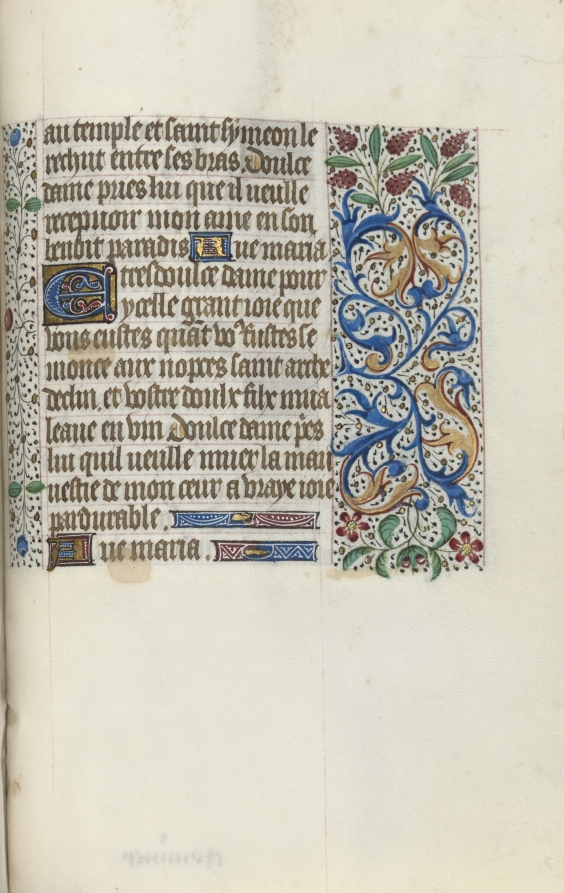 au temple et saint symeon le
rechut entre ses bras. Doulce
dame pries lui que il veulle
recepuoir mon ame en son
benoit paradis Aue maria
E tresdoulce dame pour
ycelle grant ioie que
vous eustes quāt vo⁹ fustes se
monce aux nopces saint arche
declin. et vostre doulx filx mua
leaue en vin Doulce dame p̄es
lui quil veulle muer la mau
uestie de mon cœur a vraye ioie
pardurable.
Aue maria.